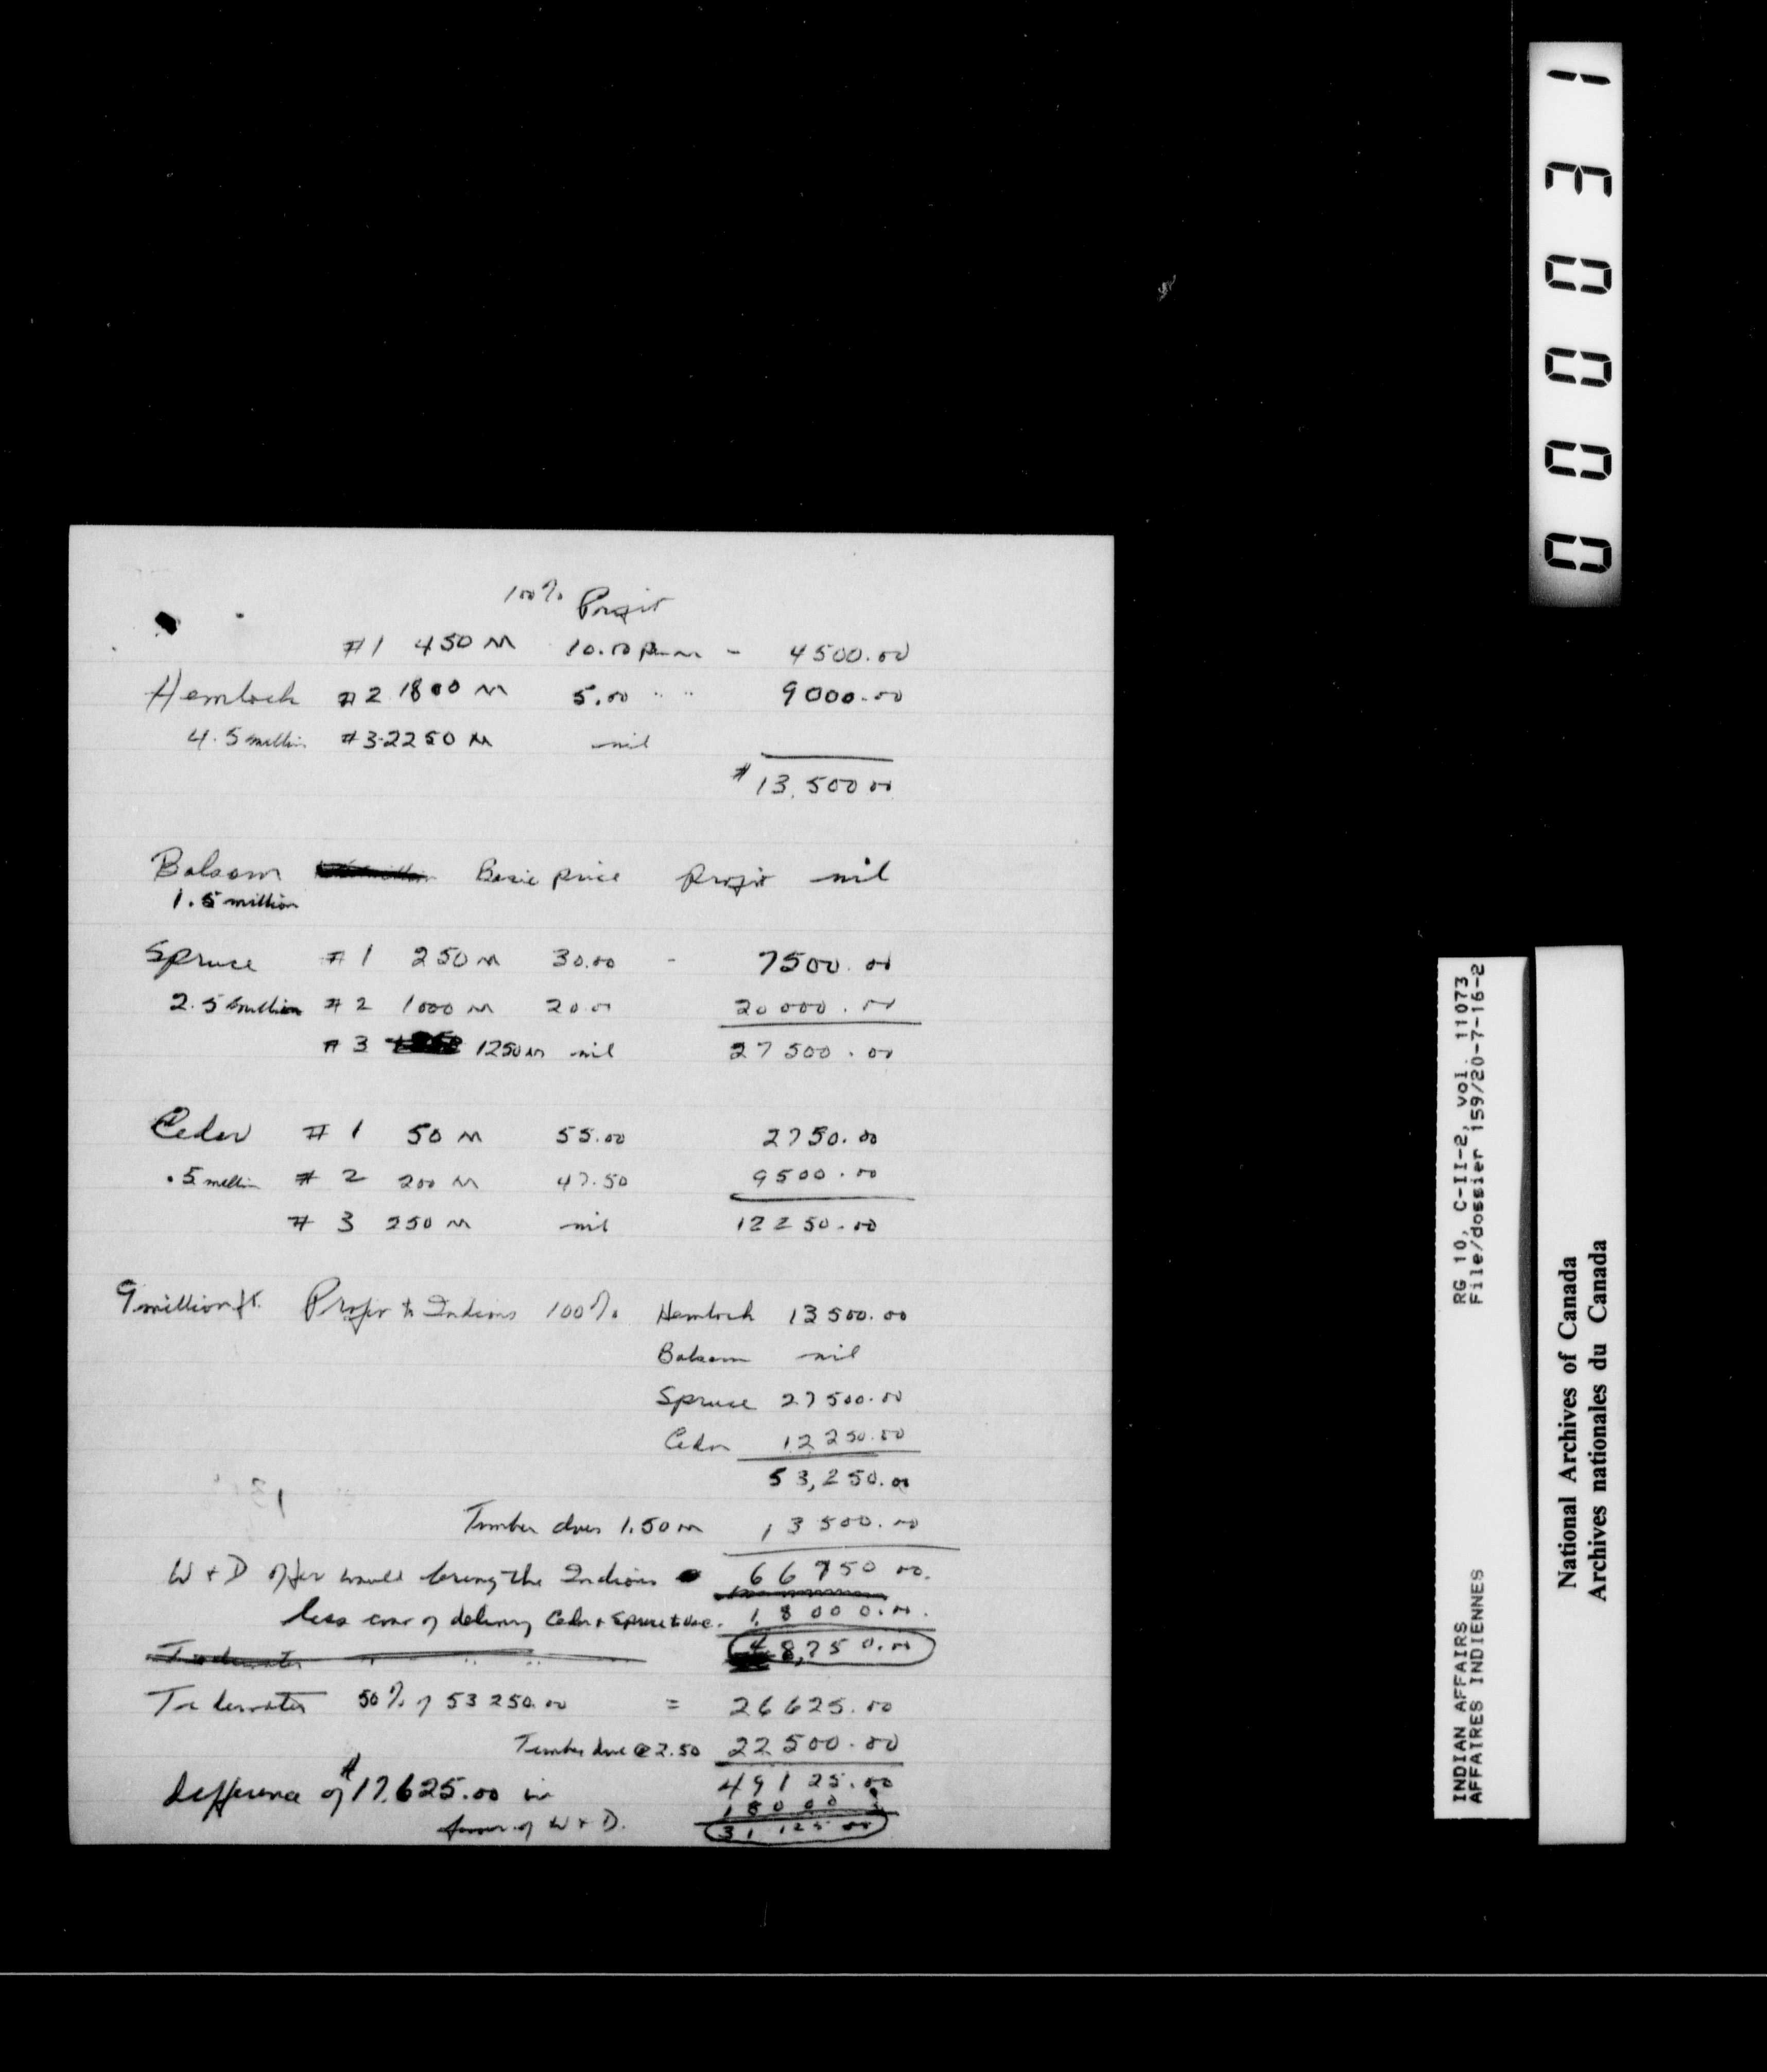 100% Profit
#1 450 M 10.00 per M - 4500.00
Hemlock #2 1800 M 5.00 " " 9000.00
4.5 million #3 2250 M nil
$13,500.00
Balsam Basic price profit nil
1.5 million
Spruce #1 250 M 30.00 - 7500.00
2.5 million #2 1000 M 20.00 20000.00
#3 1250 M nil 27500.00
Cedar #1 50 M 55.00 2750.00
.5 million #2 200 M 47.50 9500.00
#3 250 M nil 12250.00
9 million ft. Profit to Indians 100% Hemlock 13500.00
Balsam nil
Spruce 27500.00
Cedar 12,250.00
53,250.00
Timber dues 1.50 M 13500.00
W + D offer would bring the Indians 66750.00.
less cost of delivery Cedar + Spruce to Vanc. 18000.00.
Tidewater " " " 48,750.00
Tidewater 50% of 53250.00 = 26625.00
Timber due @ 2.50 22500.00
Difference of $17,625.00 in 49125.00
18000
favor of W + D. 31125.00
00031
INDIAN AFFAIRS RG 10, C-II-2, vol. 11073
AFFAIRES INDIENNES File/dossier 159/20-7-16-2
National Archives of Canada
Archives nationales du Canada